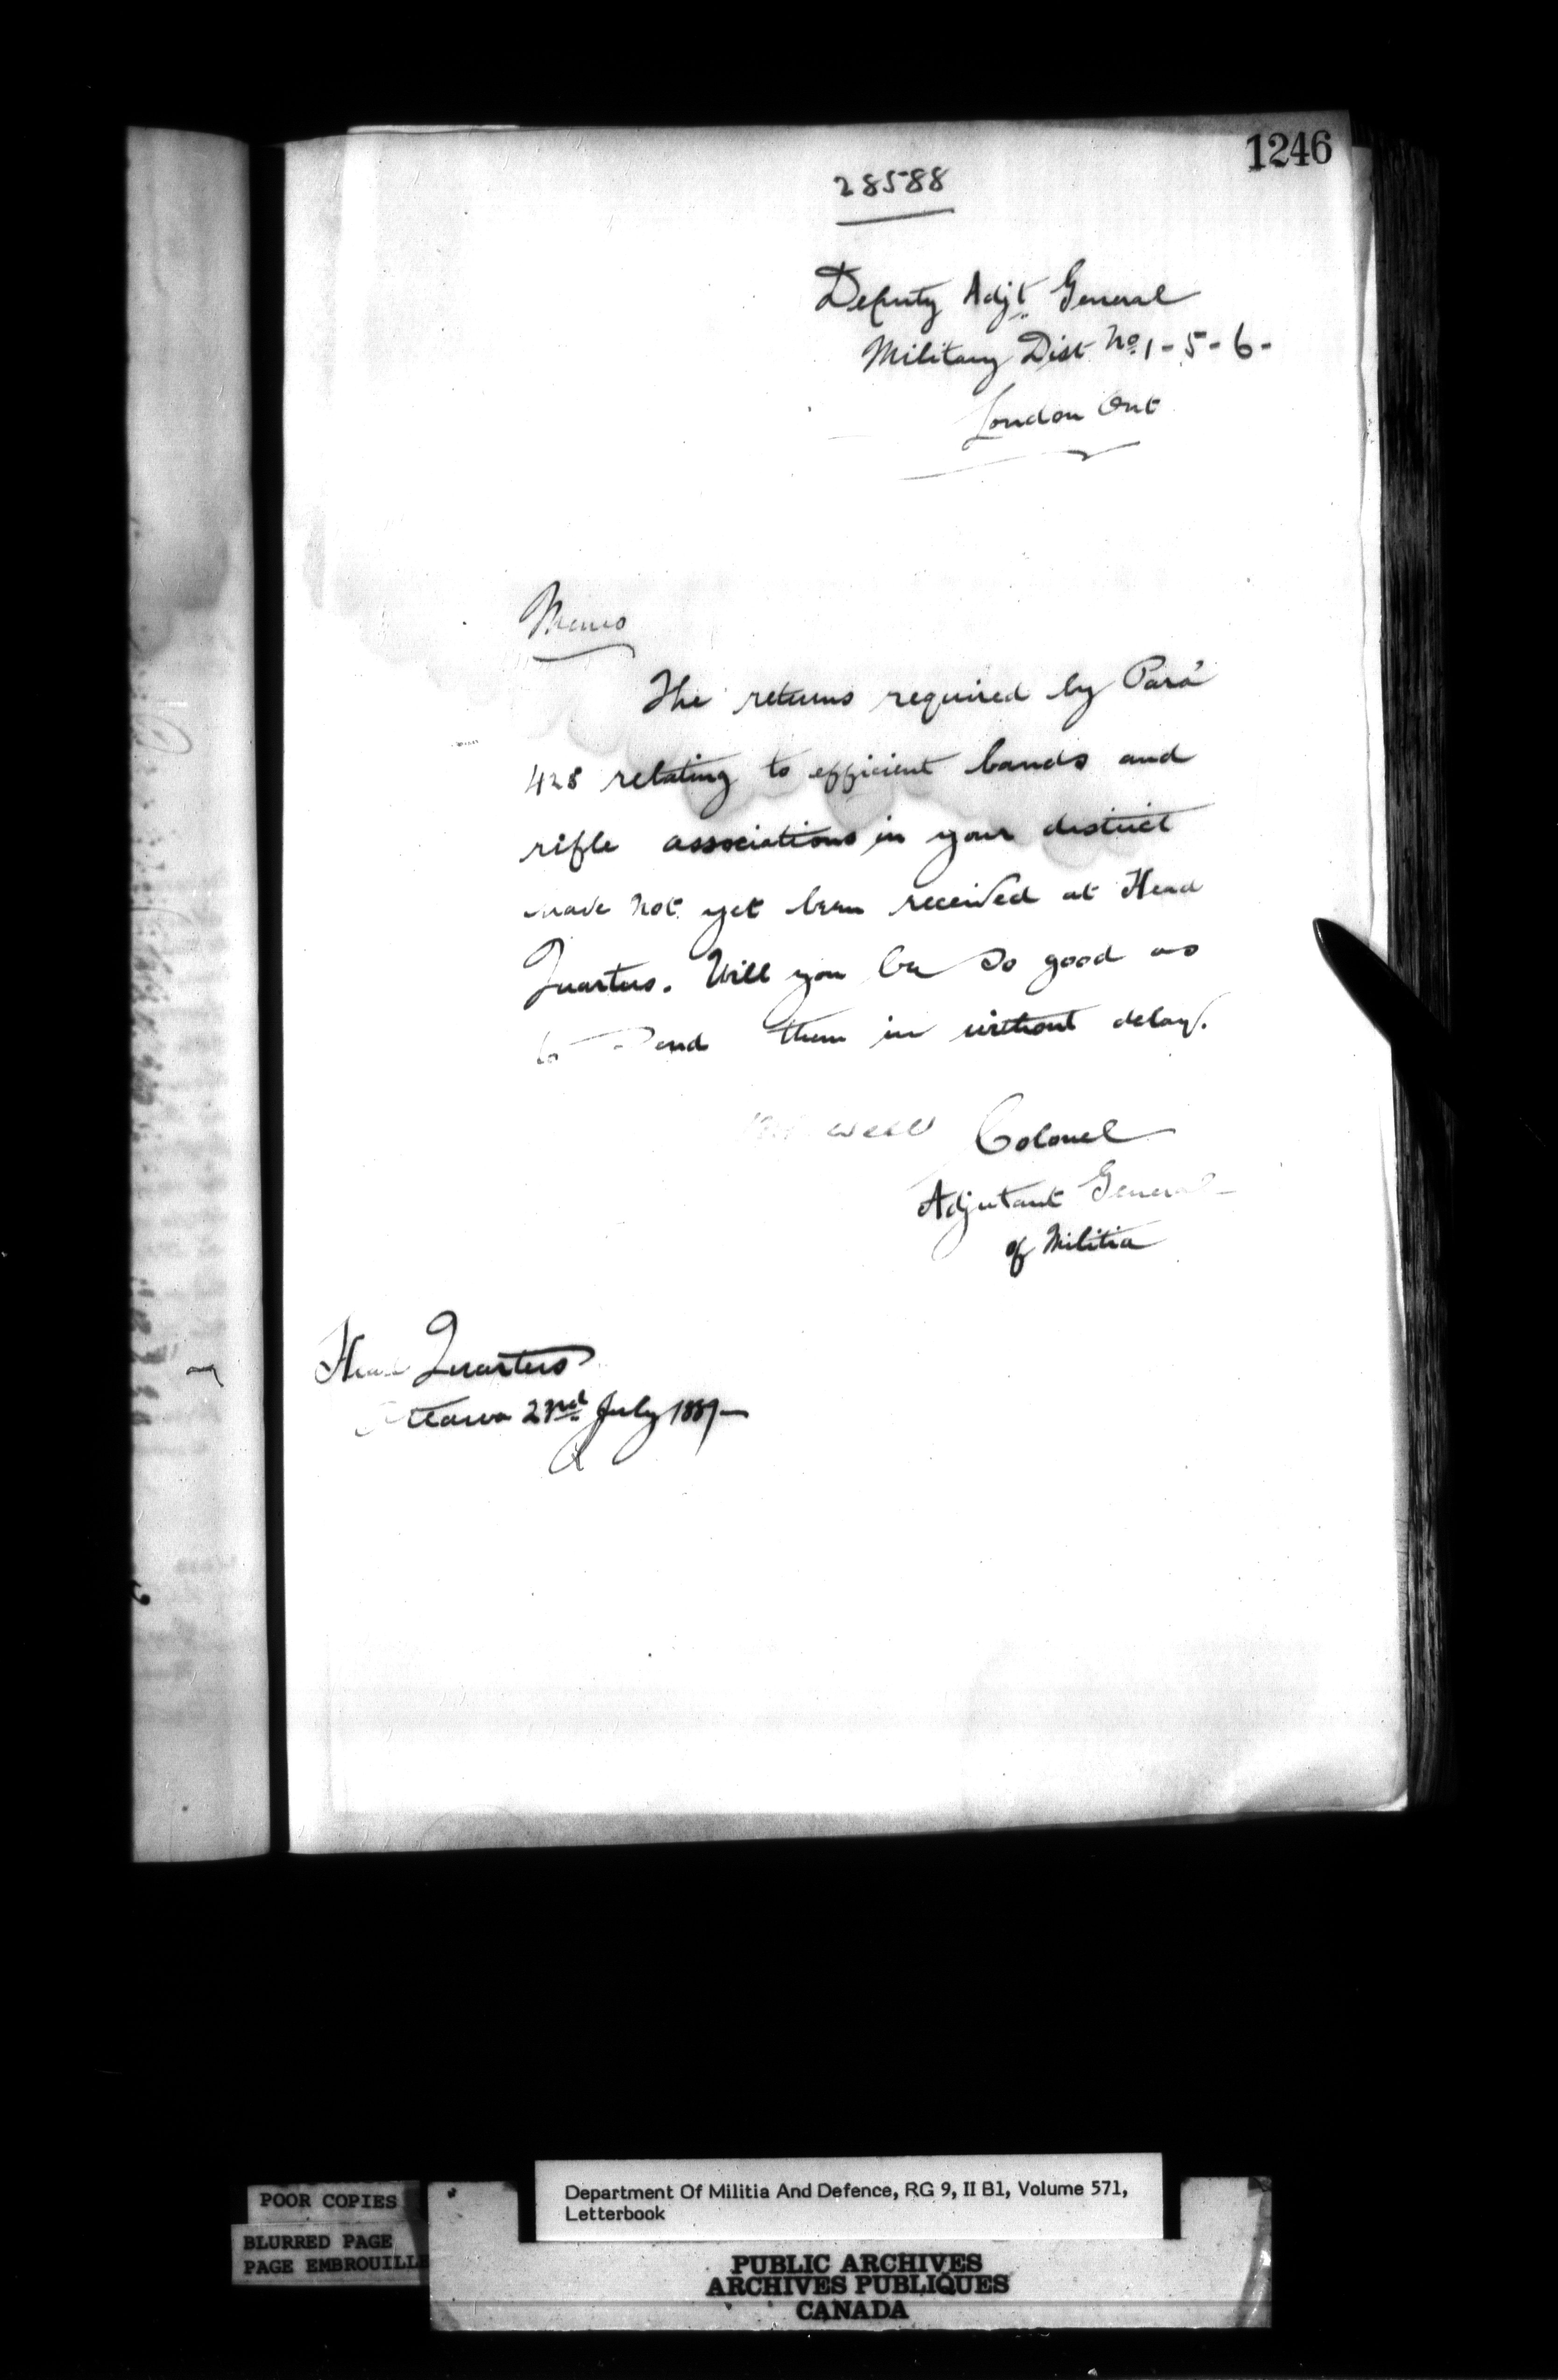 1246
28588
Deputy Adjt General
Military Dist No. 1-5-6-
London Ont
Memo
The returns required by Para
428 relating to efficient bands and
rifle associations in your district
have not yet been received at Head
Quarters. Will you be so good as
to send them in without delay.
Powell Colonel
Adjutant General
of Militia
Head Quarters
Ottawa 22nd July 1889
POOR COPIES
BLURRED PAGE
PAGE EMBROUILLE
Department Of Militia And Defence, RG 9, II B1, Volume 571,
Letterbook
PUBLIC ARCHIVES
ARCHIVES PUBLIQUES
CANADA